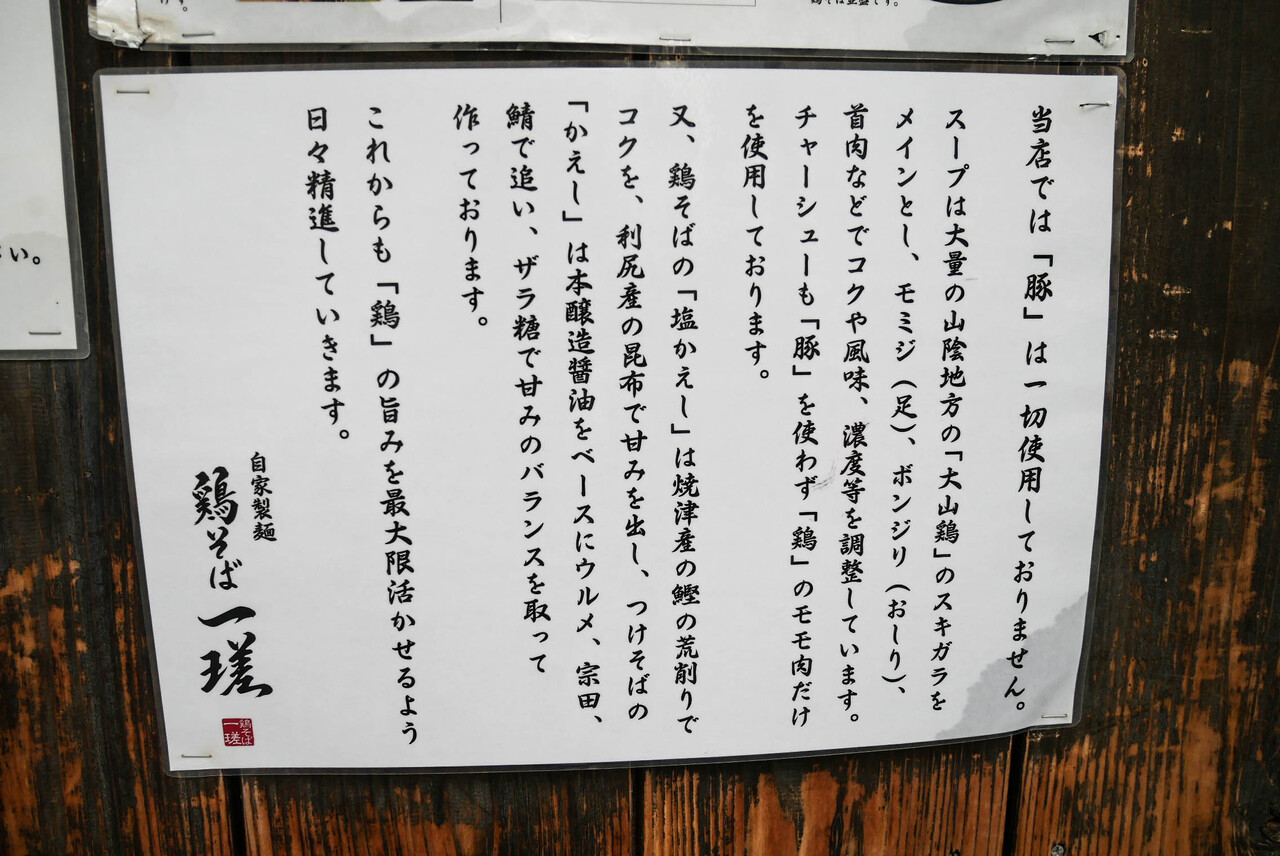 当店では「豚」は一切使用しておりません。
スープは大量の山陰地方の「大山鶏」のスキガラを
メインとし、モミジ（足）、ボンジリ（おしり）、
首肉などでコクや風味、濃度等を調整しています。
チャーシューも「豚」を使わず「鶏」のモモ肉だけ
を使用しております。
又、鶏そばの「塩かえし」は焼津産の鰹の荒削りで
コクを、利尻産の昆布で甘みを出し、つけそばの
「かえし」は本醸造醤油をベースにウルメ、宗田、
鯖で追い、ザラ糖で甘みのバランスを取って
作っております。
これからも「鶏」の旨みを最大限活かせるよう
日々精進していきます。
自家製麺
鶏そば一瑳
鶏そば
一瑳
い。